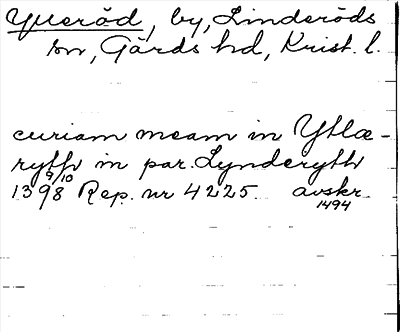 Ytteröd, by, Linderöds
sn, Gärds hd, Krist. l.
curiam meam in Ytlæ-
rythh in par. Lynderyth
1398 9/10 Rep. nr 4225. avskr.
1494